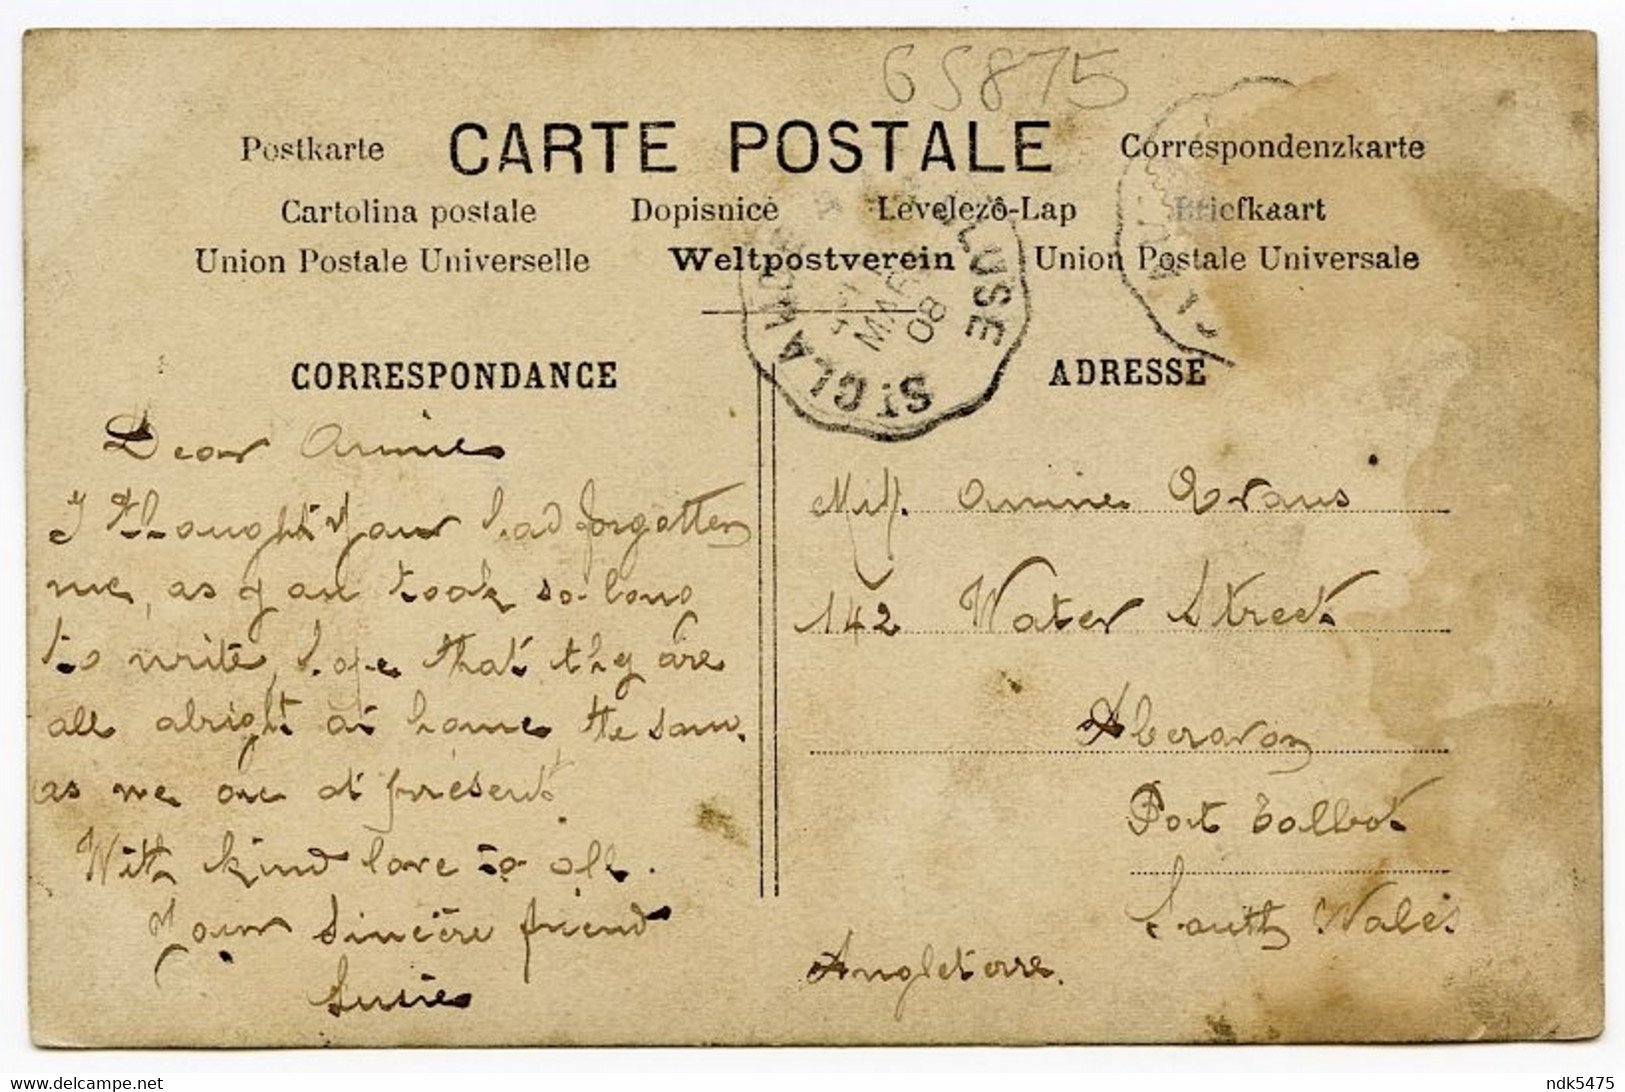 65875
Postkarte CARTE POSTALE Correspondenzkarte
Cartolina postale Dopisnicé Levelezö-Lap Briefkaart
Union Postale Universelle Weltpostverein Union Postale Universale
ST CLA
MAR
08
CORRESPONDANCE
Dear Annie
I thought your had forgotten
me, as you took so long
to write, hope that thy are
all alright at home, the sam.
as we are at present.
With kind love to all.
Your Sincère friend
Susie
ADRESSE
Miss. Annie Evans
142 Water Street
Aberavon
Port Talbot
South Wales
Angleterre.
Delcampe.net
ndk5475